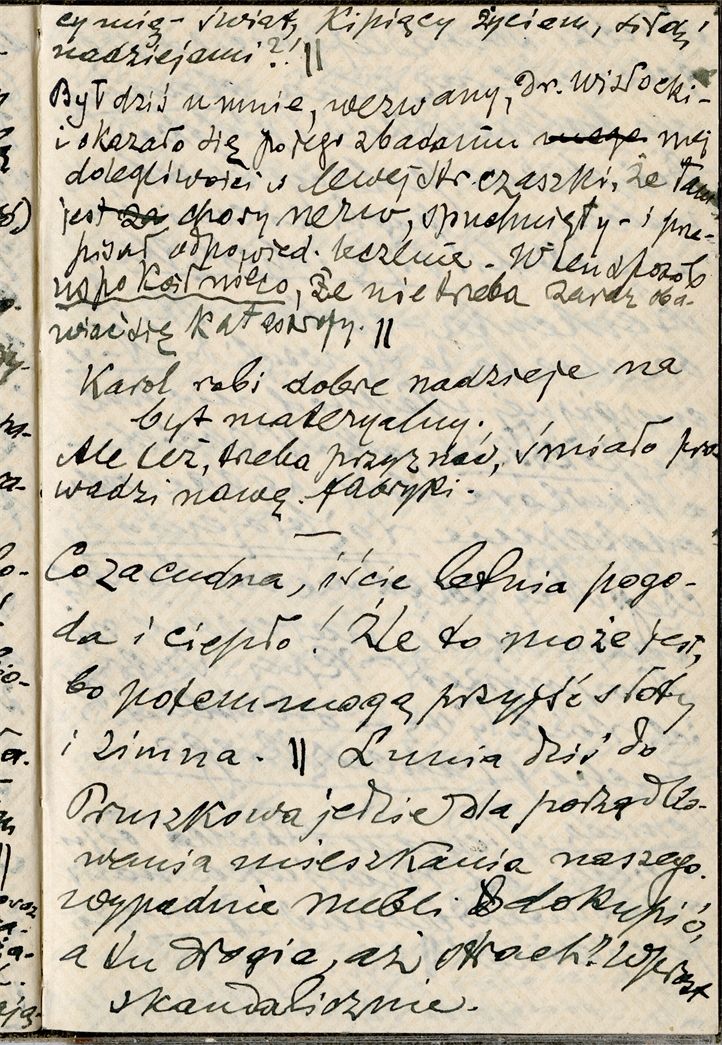 cymię - świat, Kipiący życiem, siłą i
nadziejami?! ||
Był dziś u mnie, wezwany, Dr. Wisłocki -
i okazało się po jego zbadaniu mej
dolegliwości s lewej str. czaszki, że tam
jest chory nerw, spuchnięty - i prze-
pisał odpowied. leczenie - W ten sposób
uspokoił nieco, że nie treba zaraz oba-
wiać się katastrofy. ||
Karol robi dobre nadzieje na
byt materyalny.
Ale też, treba przyznać, śmiało pro
wadzi nawę fabryki.
—
Co za cudna, iście letnia pogo-
da i ciepło! Źle to może jest,
bo potem mogą przyjść słoty
i zimna. || Lunia dziś do
Pruszkowa jedzie dla porządko-
wania mieszkania naszego.
wypadnie mebli dokupić,
a tu drogie, aż strach! Wprost
skandalicznie.